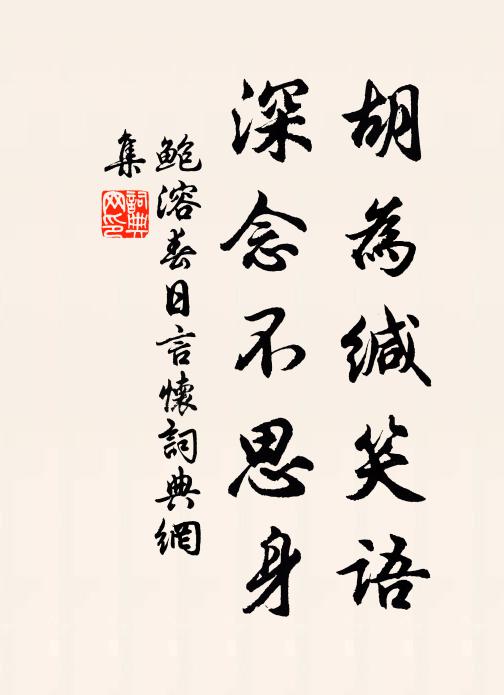 胡為緘笑語
深念不思身
鮑溶春日言懷詞典網
集
詞典
网印